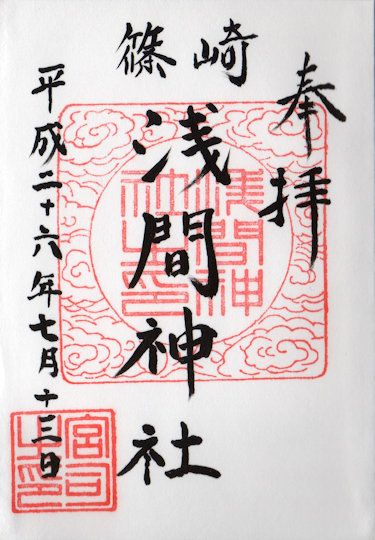 奉拝
篠崎
浅間神社
浅間神社之印
平成二十六年七月十三日
宮司之印